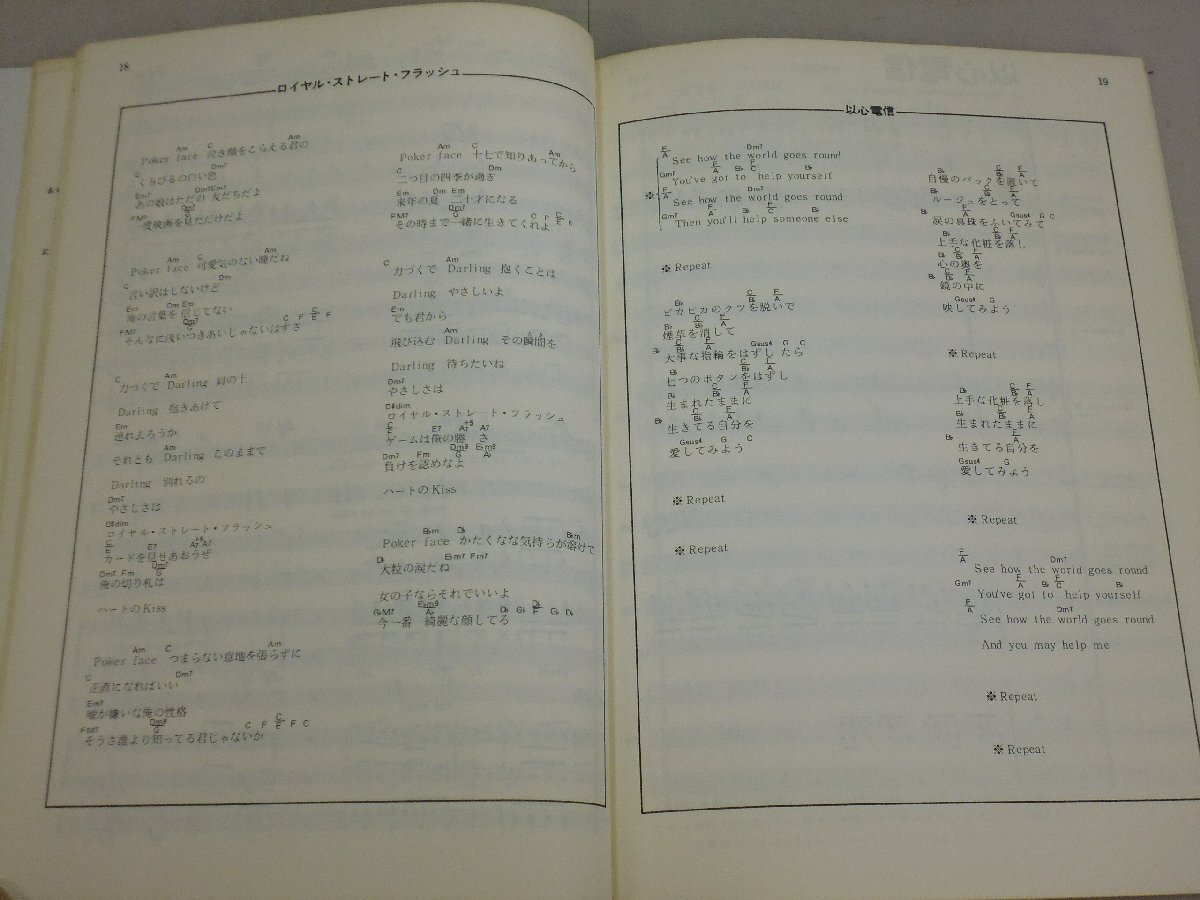 18
ロイヤル・ストレート・フラッシュ
Am C Am
Poker face 泣き顔をこらえる君の
C
くちびるの白い色
Em7 Dm7 Em7
あの娘はただの 友だちだよ
FM7
一度映画を見ただけだよ
Am C Am
Poker face 可愛気のない瞳だね
C Dm
言い訳はしないけど
Em Dm Em
俺の言葉を信じてない
FM7
そんなに浅いつきあいじゃないはずさ
C Am
力づくで Darling 肩の上
Darling 抱きあげて
Em
連れ去ろうか
Am
それとも Darling このままで
Darling 別れるの
Dm7
やさしさは
D#dim
ロイヤル・ストレート・フラッシュ
カードを見せあおうぜ
Dm7 Fm
俺の切り札は
ハートのKiss
Am C Am
Poker face つまらない意地を張らずに
C Dm7
正直になればいい
Em7
嘘が嫌いな俺の性格
FM7
そうさ誰より知ってる君じゃないか
Am C Am
Poker face 十七で知りあってから
C Dm
二つ目の四季が過ぎ
Em Dm Em
来年の夏 二十才になる
FM7
その時まで一緒に生きてくれよ
C Am
力づくで Darling 抱くことは
Darling やさしいよ
Em
でも君から
Am
飛び込む Darling その瞬間を
Darling 待ちたいね
Dm7
やさしさは
D#dim
ロイヤル・ストレート・フラッシュ
ゲームは俺の勝 さ
Dm7 Fm
負けを認めなよ
ハートのKiss
B♭m D♭ B♭m
Poker face かたくなな気持ちが溶けて
D♭ E♭m7 Fm7
大粒の涙だね
女の子ならそれでいいよ
G♭M7
今一番 綺麗な顔してる
19
以心電信
F/A Dm7
See how the world goes round
Gm7 F/A B♭ F/C B♭
You've got to help yourself
※
F/A Dm7
See how the world goes round
Gm7 F/A B♭ F/C B♭
Then you'll help someone else
※ Repeat
B♭ C/B♭ F/A
ピカピカのクツを脱いで
B♭ C/B♭ F/A
煙草を消して
B♭ C/B♭ F/A Gsus4 G C
大事な指輪をはずしたら
B♭ C/B♭ F/A
七つのボタンをはずし
B♭ C/B♭ F/A
生まれたままに
B♭ C/B♭ F/A
生きてる自分を
Gsus4 G C
愛してみよう
※ Repeat
※ Repeat
B♭ C/B♭ F/A
自慢のバックを置いて
B♭ C/B♭ F/A
ルージュをとって
B♭ C/B♭ F/A Gsus4 G C
涙の真珠をふいてみて
B♭ C/B♭ F/A
上手な化粧を落し
B♭ C/B♭ F/A
心の奥を
B♭ C/B♭ F/A
鏡の中に
Gsus4 G
映してみよう
※ Repeat
B♭ C/B♭ F/A
上手な化粧を落し
B♭ C/B♭ F/A
生まれたままに
B♭ F/A
生きてる自分を
Gsus4 G
愛してみよう
※ Repeat
F/A Dm7
See how the world goes round
Gm7 F/A B♭ F/C B♭
You've got to help yourself
F/A Dm7
See how the world goes round
And you may help me
※ Repeat
※ Repeat